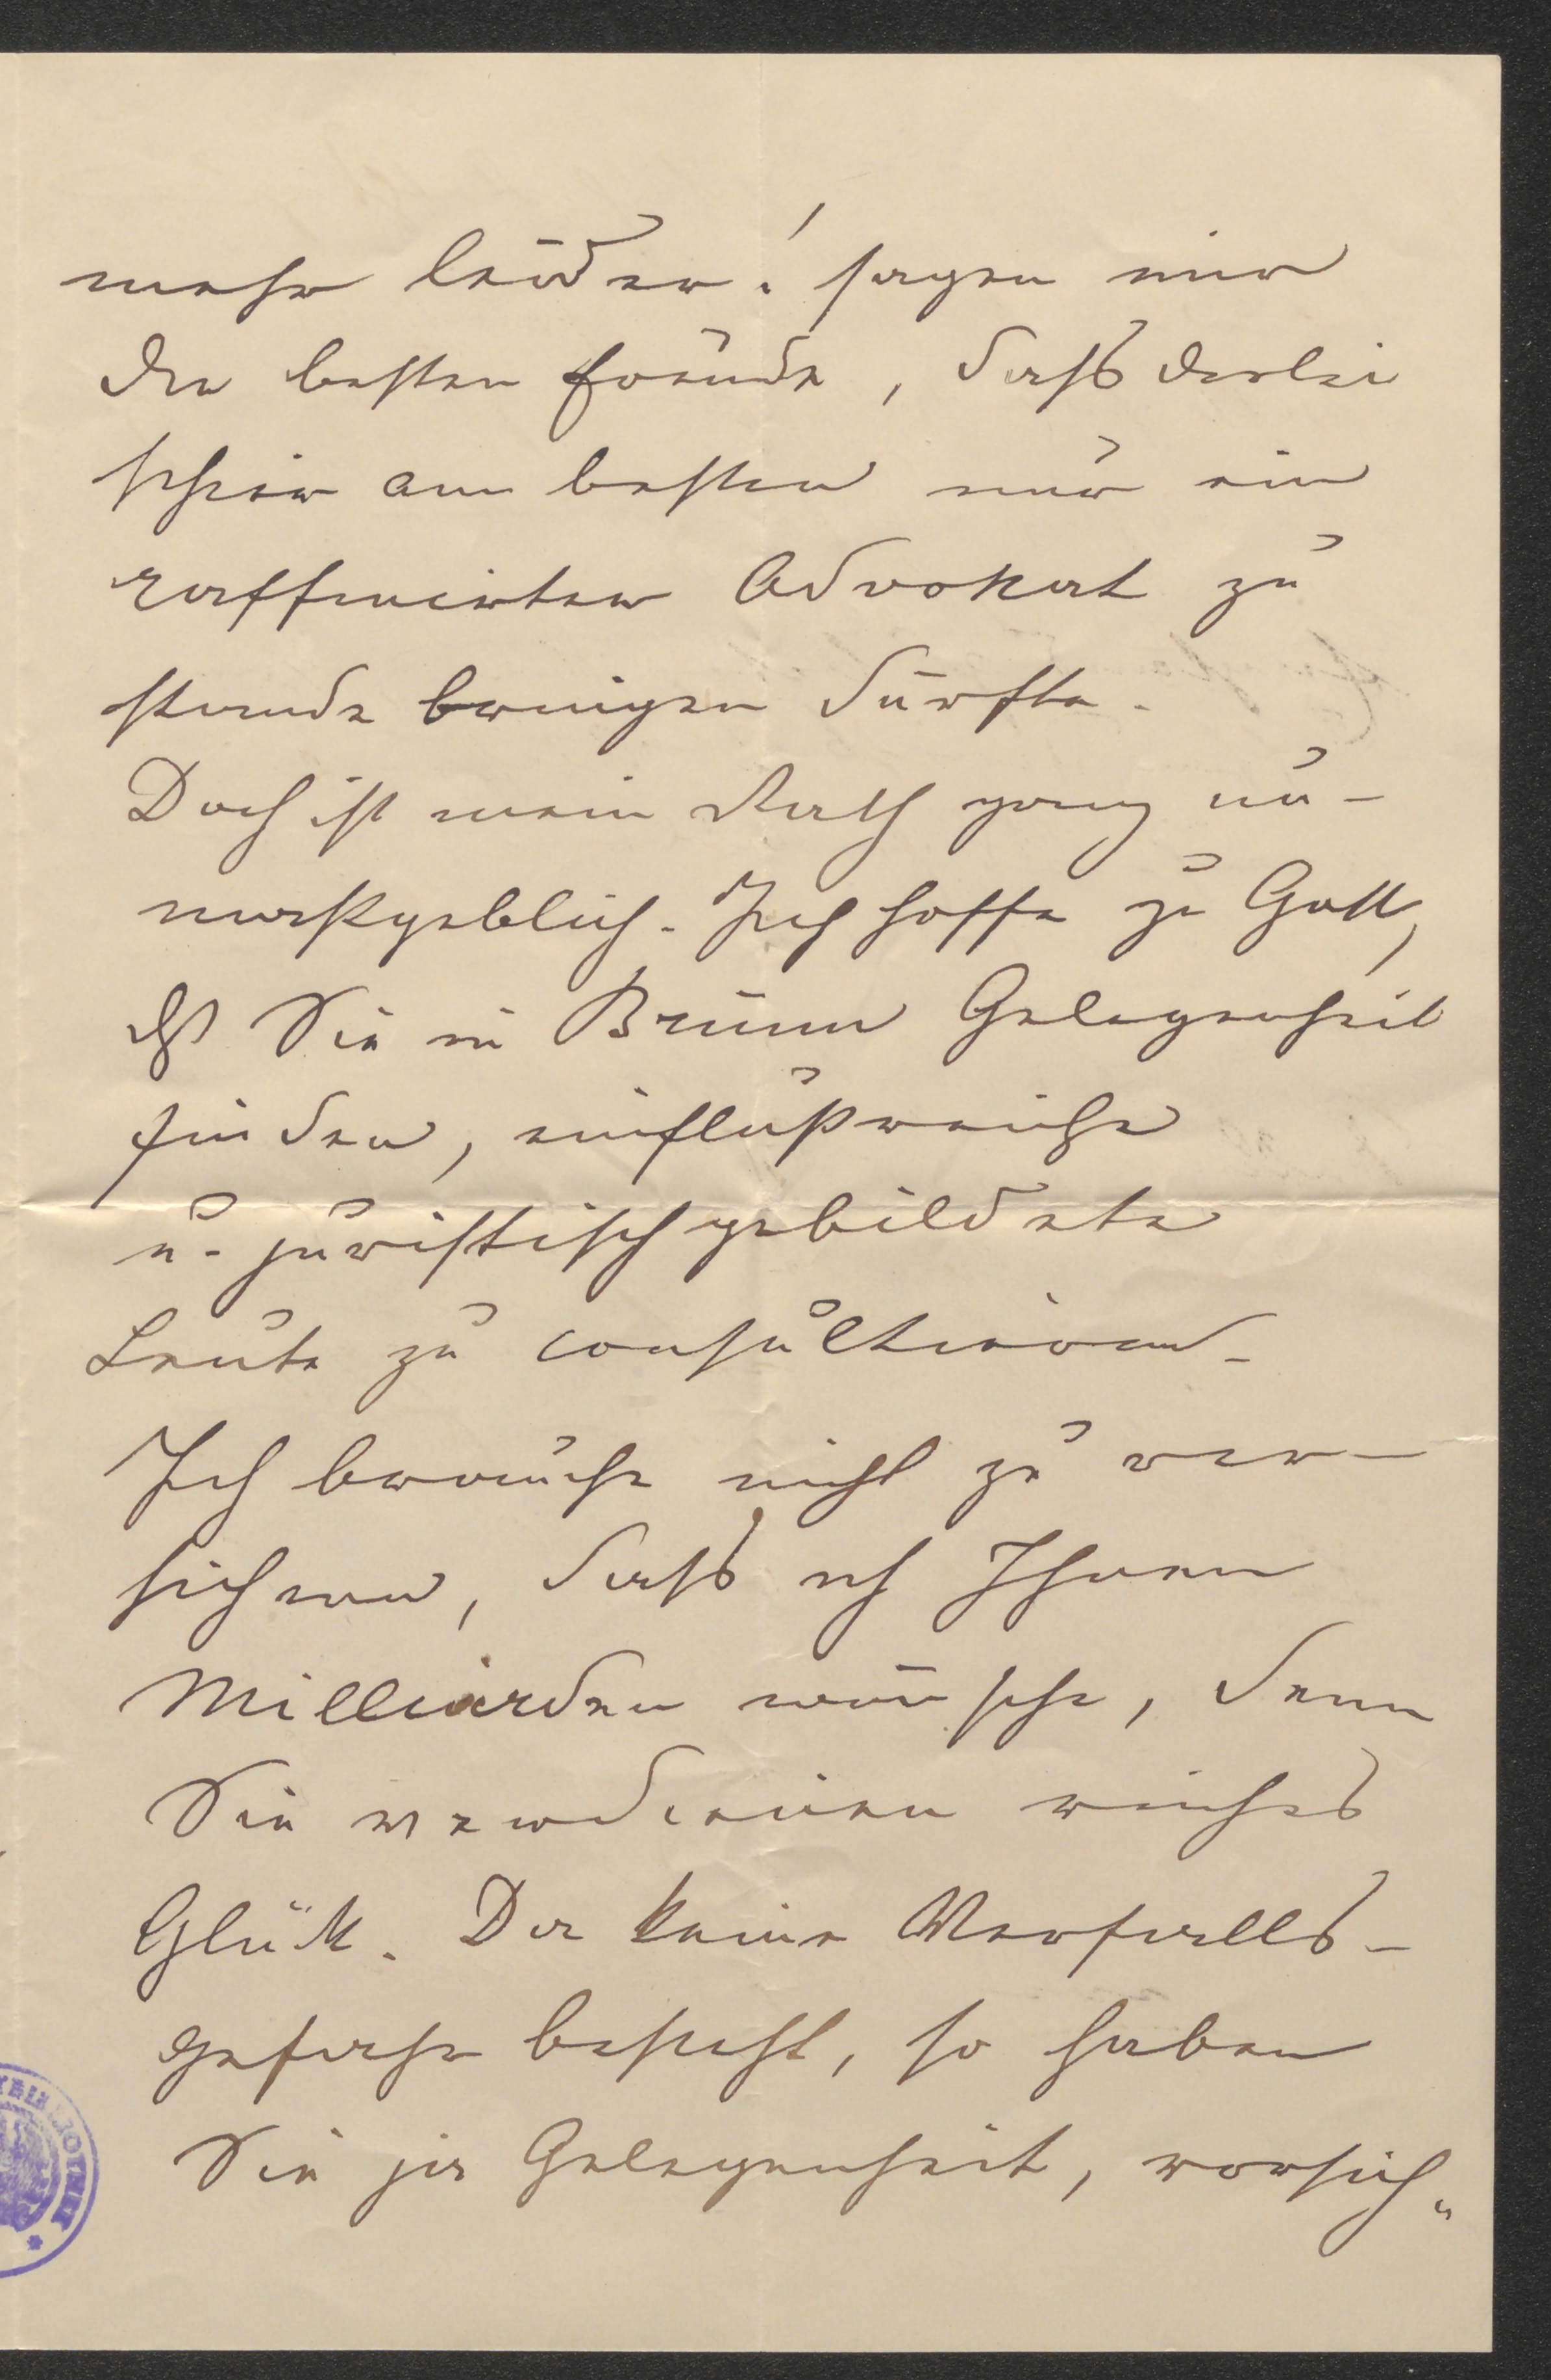 mehr leider! sagen mir
die besten Freunde, dass derlei
schier am besten nur ein
raffinirter Advokat zu
stande bringen dürfte.
Doch ist mein Rath ganz un-
maßgeblich. Ich hoffe zu Gott,
dß Sie in Brünn Gelegenheit
finden, einflußreiche
u. juristisch gebildete
Leute zu consultieren.
Ich brauche nicht zu ver-
sichern, dass ich Ihnen
Milliarden wünsche, denn
Sie verdienen reiches
Glück. Da keine Verfalls-
gefahr besteht, so haben
Sie ja Gelegenheit, vorsich-